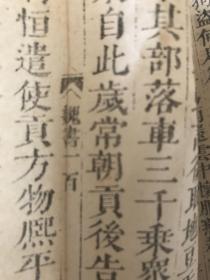 其部落車三千乘衆
自此歲常朝貢後告
魏書一百
恒遣使貢方物熙平